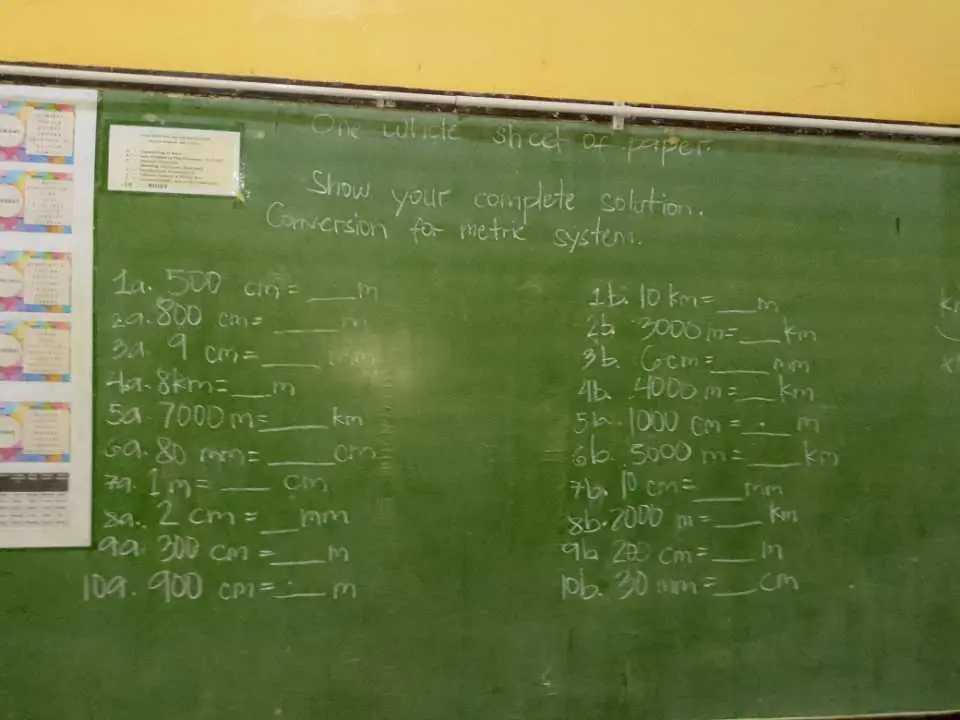 One whole sheet of paper.
Show your complete solution.
Conversion for metric system.
1a. 500 cm = ___ m
2a. 800 cm = ___ m
3a. 9 cm = ___ mm
4a. 8km = ___ m
5a. 7000 m = ___ km
6a. 80 mm = ___ cm
7a. 1 m = ___ cm
8a. 2 cm = ___ mm
9a. 300 cm = ___ m
10a. 900 cm = ___ m
1b. 10 km = ___ m
2b. 3000 m = ___ km
3b. 6 cm = ___ mm
4b. 4000 m = ___ km
5b. 1000 cm = ___ m
6b. 5000 m = ___ km
7b. 10 cm = ___ mm
8b. 2000 m = ___ km
9b. 200 cm = ___ m
10b. 30 mm = ___ cm